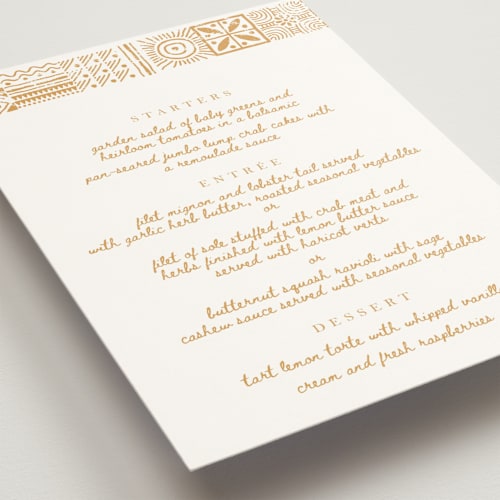 STARTERS
garden salad of baby greens and
heirloom tomatoes in a balsamic
pan-seared jumbo lump crab cakes with
a remoulade sauce
ENTRÉE
filet mignon and lobster tail served
with garlic herb butter, roasted seasonal vegetables
or
filet of sole stuffed with crab meat and
herbs finished with lemon butter sauce
served with haricot verts
or
butternut squash ravioli with sage
cashew sauce served with seasonal vegetables
DESSERT
tart lemon torte with whipped vanilla
cream and fresh raspberries